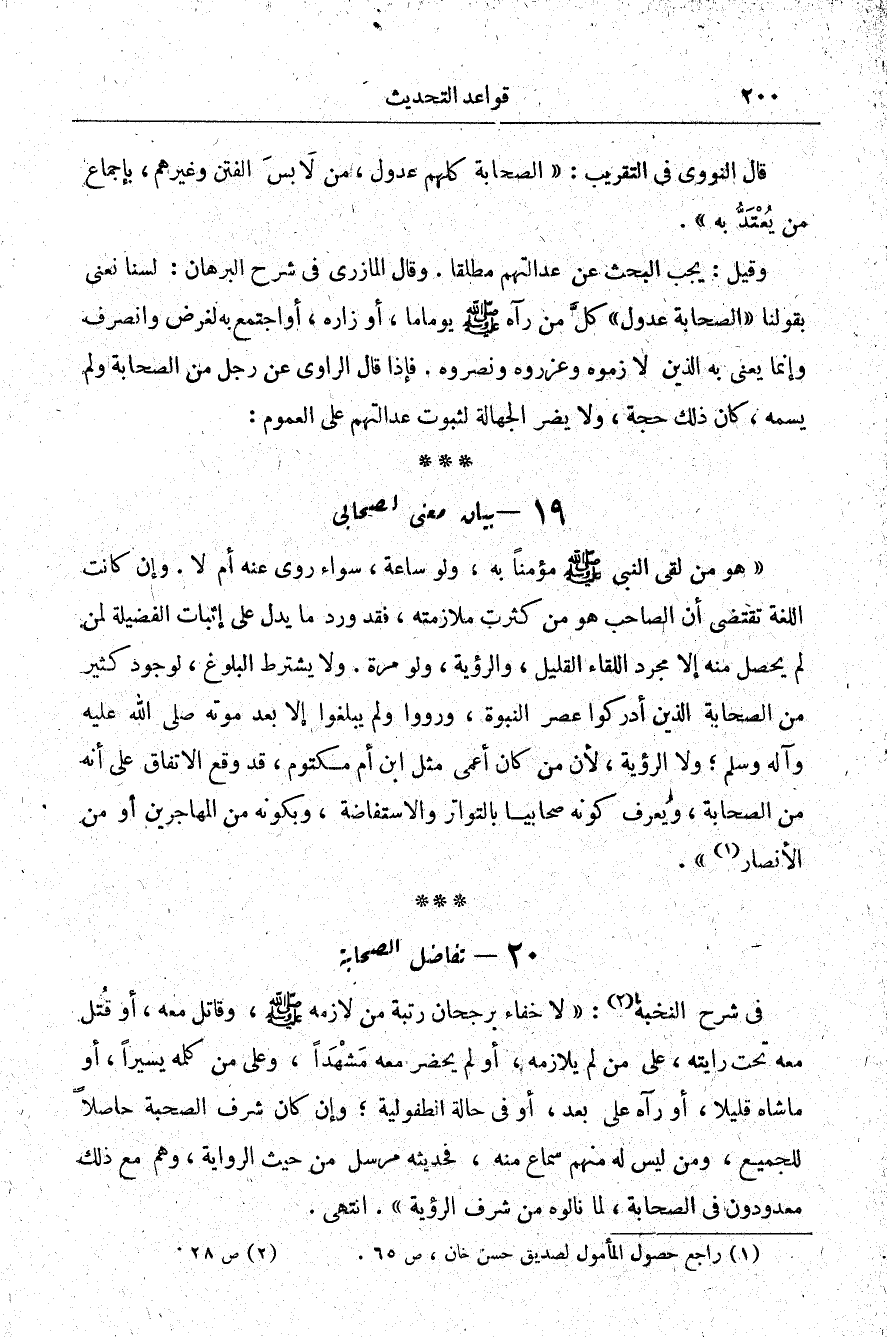 ٢٠٠ قواعد التحديث
قال النووى فى التقريب : « الصحابة كلهم عدول ، من لَابسَ الفتن وغيرهم ، بإجماع
من يُعْتَدُّ به » .
وقيل : يجب البحث عن عدالتهم مطلقا . وقال المازرى فى شرح البرهان : لسنا نعنى
بقولنا «الصحابة عدول» كلَّ من رآه ﷺ يوماما ، أو زاره ، أو اجتمع به لغرض وانصرف
وإنما يعنى به الذين لازموه وعزروه ونصروه . فإذا قال الراوى عن رجل من الصحابة ولم
يسمه ، كان ذلك حجة ، ولا يضر الجهالة لثبوت عدالتهم على العموم :
***
١٩ – بيان معنى الصحابى
« هو من لقى النبي ﷺ مؤمناً به ، ولو ساعة ، سواء روى عنه أم لا . وإن كانت
اللغة تقتضى أن الصاحب هو من كثرت ملازمته ، فقد ورد ما يدل على إثبات الفضيلة لمن
لم يحصل منه إلا مجرد اللقاء القليل ، والرؤية ، ولو مرة . ولا يشترط البلوغ ، لوجود كثير
من الصحابة الذين أدركوا عصر النبوة ، ورووا ولم يبلغوا إلا بعد موته صلى الله عليه
وآله وسلم ؛ ولا الرؤية ، لأن من كان أعمى مثل ابن أم مكتوم ، قد وقع الاتفاق على أنه
من الصحابة ، ويُعرف كونه صحابيا بالتواتر والاستفاضة ، وبكونه من المهاجرين أو من
الأنصار (١) » .
***
٢٠ – تفاضل الصحابة
فى شرح النخبة (٢) : « لا خفاء برجحان رتبة من لازمه ﷺ ، وقاتل معه ، أو قُتل
معه تحت رايته ، على من لم يلازمه ، أو لم يحضر معه مَشْهَداً ، وعلى من كلمه يسيراً ، أو
ماشاه قليلا ، أو رآه على بعد ، أو فى حالة الطفولية ؛ وإن كان شرف الصحبة حاصلاً
للجميع ، ومن ليس له منهم سماع منه ، فحديثه مرسل من حيث الرواية ، وهم مع ذلك
معدودون فى الصحابة ، لما نالوه من شرف الرؤية » . انتهى .
(١) راجع حصول المأمول لصديق حسن خان ، ص ٦٥ . (٢) ص ٢٨ .